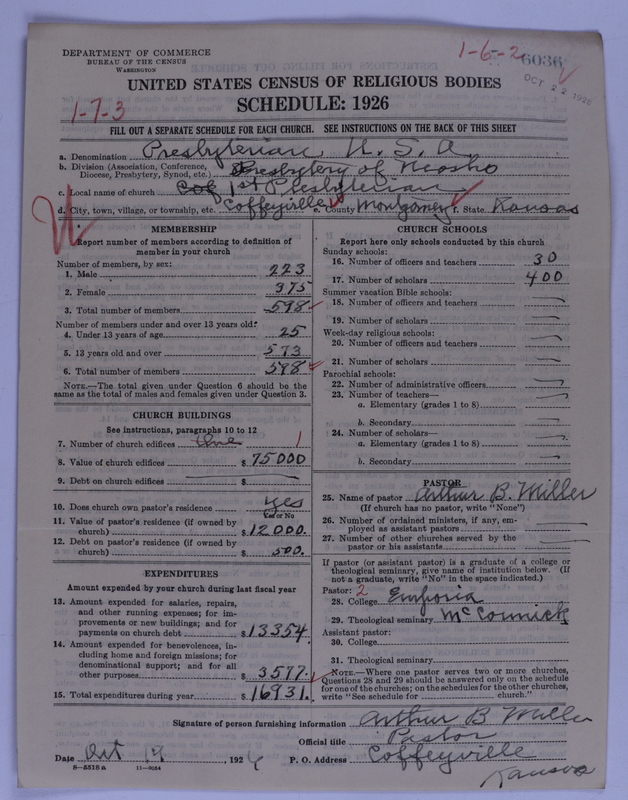 DEPARTMENT OF COMMERCE
BUREAU OF THE CENSUS
WASHINGTON
1-6-2
6036
OCT 22 1926
UNITED STATES CENSUS OF RELIGIOUS BODIES
1-7-3
SCHEDULE: 1926
FILL OUT A SEPARATE SCHEDULE FOR EACH CHURCH. SEE INSTRUCTIONS ON THE BACK OF THIS SHEET
a. Denomination Presbyterian U. S. A.
b. Division (Association, Conference, Diocese, Presbytery, Synod, etc.) Presbytery of Neosho
c. Local name of church 1st Presbyterian
d. City, town, village, or township, etc. Coffeyville e. County Montgomery f. State Kansas
MEMBERSHIP
Report number of members according to definition of
member in your church
Number of members, by sex:
1. Male 223
2. Female 375
3. Total number of members 598
Number of members under and over 13 years old:
4. Under 13 years of age 25
5. 13 years old and over 573
6. Total number of members 598
NOTE.—The total given under Question 6 should be
same as the total of males and females given under Question 3.
CHURCH BUILDINGS
See instructions, paragraphs 10 to 12
7. Number of church edifices One 1
8. Value of church edifices $ 75000
9. Debt on church edifices $
10. Does church own pastor's residence Yes
Yes or No
11. Value of pastor's residence (if owned by
church) $ 12000.
12. Debt on pastor's residence (if owned by
church) $ 500.
EXPENDITURES
Amount expended by your church during last fiscal year
13. Amount expended for salaries, repairs,
and other running expenses; for im-
provements or new buildings; and for
payments on church debt $ 13354
14. Amount expended for benevolences, in-
cluding home and foreign missions; for
denominational support; and for all
other purposes $ 3577
15. Total expenditures during year $ 16931.
CHURCH SCHOOLS
Report here only schools conducted by this church
Sunday schools:
16. Number of officers and teachers 30
17. Number of scholars 400
Summer vacation Bible schools:
18. Number of officers and teachers
19. Number of scholars
Week-day religious schools:
20. Number of officers and teachers
21. Number of scholars
Parochial schools:
22. Number of administrative officers
23. Number of teachers—
a. Elementary (grades 1 to 8)
b. Secondary
24. Number of scholars—
a. Elementary (grades 1 to 8)
b. Secondary
PASTOR
25. Name of pastor Arthur B. Miller
(If church has no pastor, write "None")
26. Number of ordained ministers, if any, em-
ployed as assistant pastors
27. Number of other churches served by the
pastor or his assistants
If pastor (or assistant pastor) is a graduate of a college or
theological seminary, give name of institution below. (If
not a graduate, write "No" in the space indicated.)
Pastor: 2
28. College Emporia
29. Theological seminary McCormick
Assistant pastor:
30. College
31. Theological seminary
NOTE.—Where one pastor serves two or more churches,
Questions 28 and 29 should be answered only on the schedule
for one of the churches; on the schedules for the other churches,
write "See schedule for church."
Signature of person furnishing information Arthur B Miller
Official title Pastor
Date Oct 19, 1926 P. O. Address Coffeyville
Kansas
8-5518a 11-9034